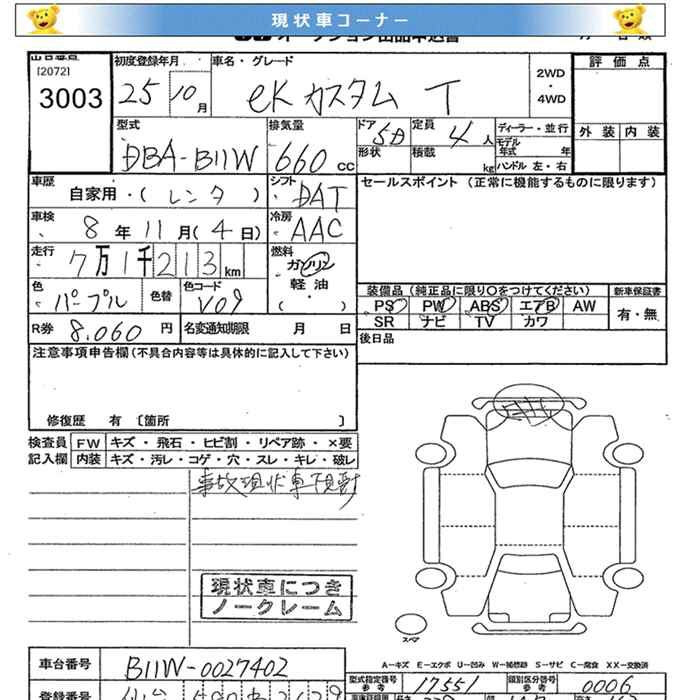 現状車コーナー
オークション出品申込書
出品番号 初度登録年月 車名・グレード
[2072]
3003 25 10月 eKカスタム T 2WD・4WD 評価点
型式 排気量 ドア 5D 定員 4人 ディーラー・並行 外装 内装
DBA-B11W 660cc 形状 積載 kg モデル年式 年
ハンドル 左・右
車歴 自家用・(レンタ) シフト DAT セールスポイント (正常に機能するものに限ります)
車検 8年11月(4日) 冷房 AAC
走行 7万1千213km 燃料 ガソリン
軽油
( ・ )
色 パープル 色替 色コード V09 装備品(純正品に限り○をつけてください) 新車保証書
PS PW ABS エアB AW 有・無
SR ナビ TV カワ
R券 8,060円 名変通知期限 月 日
後日品
注意事項申告欄(不具合内容等は具体的に記入して下さい)
修復歴 有 [箇所 ]
検査員 FW キズ・飛石・ヒビ割・リペア跡・×要
記入欄 内装 キズ・汚レ・コゲ・穴・スレ・キレ・破レ
事故現状車下見
現状車につき
ノークレーム
スペア
A-キズ E-エクボ U-凹み W-補修跡 S-サビ C-腐食 XX-交換済
車台番号 B11W-0027402 型式指定番号 参考 17551 類別区分番号 参考 0006
登録番号 仙台